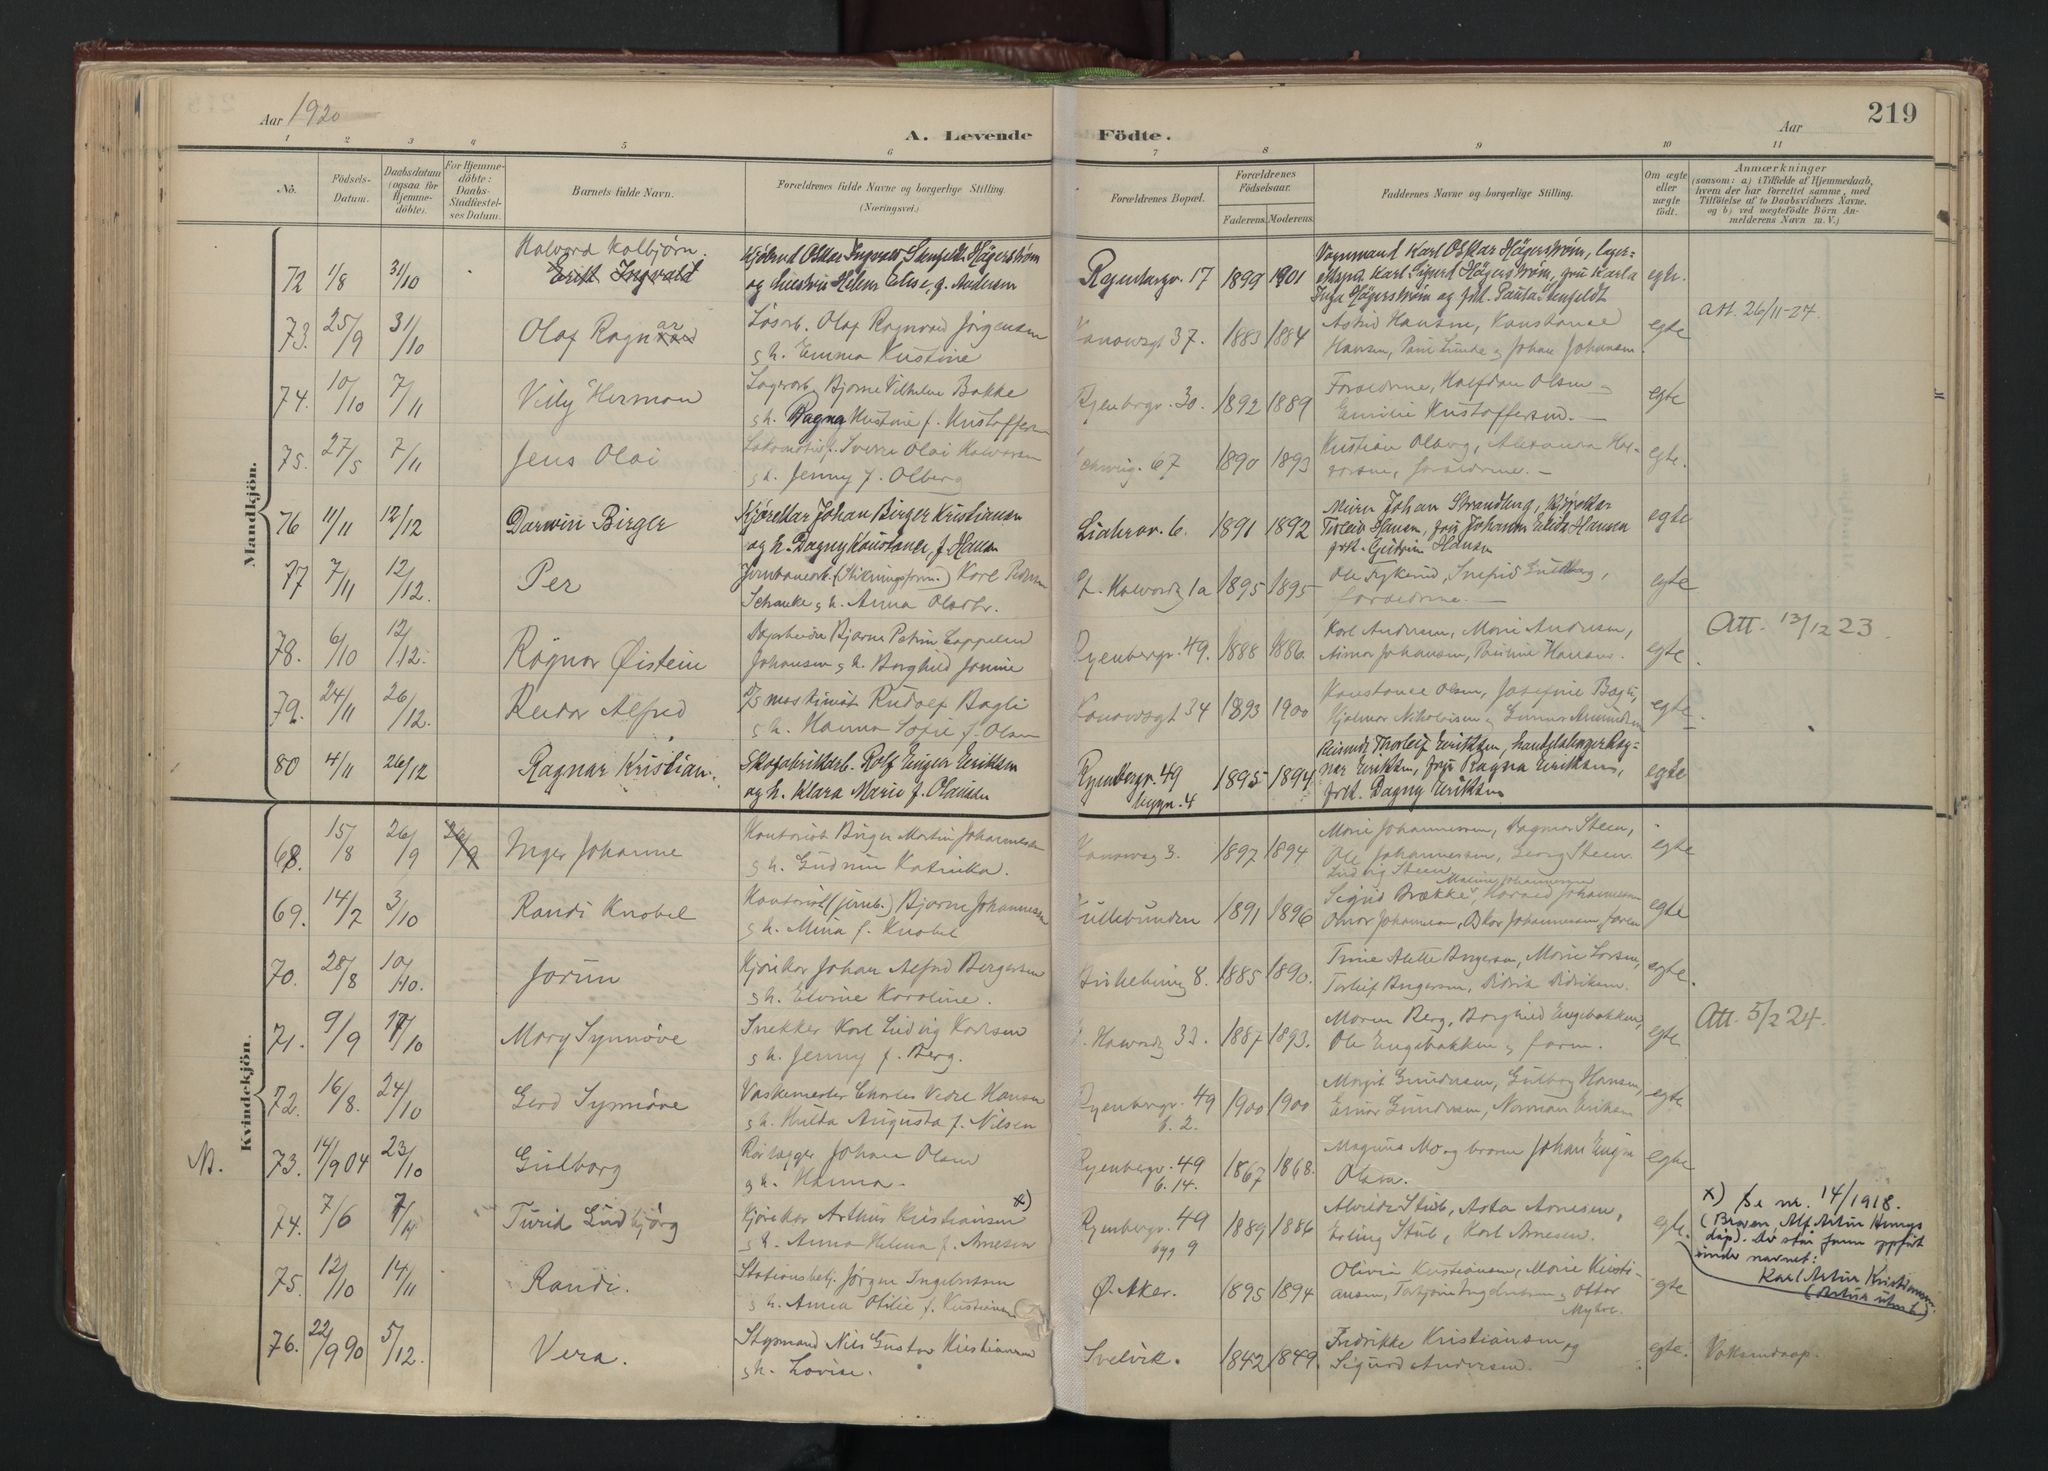 Aar 1920
A. Levende Födte.
Aar
219
1 2 3 4 5 6 7 8 9 10 11
No.
Födsels-Datum.
Daabsdatum (ogsaa for Hjemme-döbte).
For Hjemme-döbte: Daabs-Stadfæstel-ses Datum.
Barnets fulde Navn.
Forældrenes fulde Navne og borgerlige Stilling. (Næringsvei.)
Forældrenes Bopæl.
Forældrenes Födselsaar.
Faderens. Moderens.
Faddernes Navne og borgerlige Stilling.
Om ægte eller uægte födt.
Anmærkninger
(saasom: a) i Tilfælde af Hjemmedaab, hvem der har forrettet samme, med Tilföielse af to Daabsvidners Navne, og b) ved uægtefödte Börn An-melderens Navn m. V.)
Mandkjön.
72 1/8 31/10 Halvard Kolbjörn. Erik Ingvald
og hustru Helene Elise, f. Andersen
Ryenbergv. 17 1899 1901
Vognmand Karl Oskar Hägerström, lager-
Karl Sigurd Hägerström, fru Karla
Inga Hägerström og frk. Paula Stenfeldt
egte.
73. 25/9 31/10 Olaf Ragnar
Løsarb. Olaf Ragnvald Jörgensen
g h. Emma Kristine
Kanowsgt 37. 1883 1884
Astrid Hansen, Konstanse
Hansen, Paul Lunde g Johan Johansen.
egte
Att. 26/11-24.
74. 10/10 7/11 Villy Herman
Lagerarb. Bjarne Vilhelm Bakke
g h. Dagny Kristine f. Kristoffersen
Ryenbergv. 30. 1892 1889
Forældrene, Halfdan Olsen
Emilie Kristoffersen.
egte
75. 27/5 7/11 Jens Olai
Sverre Olai Halvorsen
g h. Jenny f. Olberg
67 1890 1893
Kristian Olberg, Alexandra Hal-
vorsen, forældrene.
egte.
76 11/11 12/12 Darwin Birger
Kjørekar Johan Birger Kristiansen
og h. Dagny Konstance, f. Hansen
Liabrov. 6. 1891 1892
Murer Johan Strandberg, kjørekar
Torleif Hansen, fru Johanne Elida Hansen
frk. Gudrun Hansen
egte
77 7/11 12/12. Per
Jernbanearb. (Stikningsform.) Karl
Schanke g h. Anna Olasdtr.
St. Halvardsg 1a 1895 1895
Ole
forældrene.
egte
78. 6/10 12/12. Ragnar Øistein
Lagerbeider Bjarne Petrin Cappelen
Johansen g h. Borghild Jonine
Ryenbergv. 49. 1888 1886.
Karl Andersen, Marie Andersen,
Johansen, Pauline Hansen.
egte
Att. 13/12 23.
79. 24/11 26/12. Reidar Alfred
maskinist Rudolf Bagli
g h. Hanna Sofie f. Olsen
Kanowsgt 34 1893 1900
Konstance Olsen, Josefine Bagli,
Hjalmar Nikolaisen g Gunnar Amundsen
egte
80 4/11 26/12 Ragnar Kristian
Skofabrikarb. Rolf Einar Eriksen
og h. Klara Marie f. Olausen
Ryenbergv. 49 bygn. 4 1895 1894
Thorleif Eriksen, Rag-
nar Eriksen, frue Ragna Eriksen,
frk. Dagny Eriksen
egte
Kvindekjön.
68. 15/8 26/9 26/9 Inger Johanne
Kontorist Birger Martin Johannessen
g h. Gudrun Katinka.
Kanowsg 3. 1897 1894
Marie Johannessen, Dagmar Steen,
Ole Johannessen, Georg Steen
Ludvig Steen
egte
69. 14/7 3/10 Randi Knobel
Kontorist (jernb.) Bjarne Johannessen
g h. Mina f. Knobel
1891 1896
Sigrid Brække, Harald Johannessen
Johannessen, Oskar Johannessen, faren
egte
70. 28/8 10/10. Jorun
Kjørekar Johan Alfred Bergersen
g h. Elvine Karoline.
8. 1885 1890.
Trine Alette Bergersen, Marie Larsen,
Torleif Bergersen, Didrik Didriksen.
egte.
71. 9/9 17/10 Mary Synnöve
Snekker Karl Ludvig Karlsen
g h. Jenny f. Berg.
St. Halvardsg 33. 1887 1893.
Maren Berg, Borghild Engebakken,
Ole Engebakken g faren.
egte
Att. 5/2 24.
72. 16/8. 24/10 Gerd Synnöve
Vaskemester Charles Vidar Hansen
g h. Hulda Augusta f. Nilsen
Ryenbergv. 49 b. 2. 1900 1900
Margit Gundersen, Gulborg Hansen,
Einar Gundersen, Norman Eriksen
egte
N. 73. 14/9 04 23/10 Gulborg
Rörlægger Johan Olsen
g h. Hanna.
Ryenbergv. 49 b. 14. 1867 1868.
Magnus Mo og broren Johan Einar
Olsen.
egte
74. 7/6 7/11 Turid Lindbjörg
Kjørekar Arthur Kristiansen x)
g h. Anna Helena f. Arnesen
Ryenbergv. 49 byg 9 1889 1886
Alvilde Stub, Asta Arnesen,
Erling Stub, Karl Arnesen.
egte.
x) Se nr. 14/1918.
(Broren, Alf Artur Hennys
dåp). Der står faren oppført
under navnet:
Karl Artur Kristiansen.
75. 12/10 14/11 Randi.
Stationsbetj. Jörgen Ingebretsen
g h. Anna Otilie f. Kristiansen
Ø. Aker. 1895 1894
Olivia Kristiansen, Marie Kristi-
ansen, Torbjörn Ingebretsen g Ottar
Myhre.
egte
76. 22/9 90 5/12. Vera.
Styrmand Nils Gustav Kristiansen
g h. Lovise.
Svelvik. 1842 1849.
Fredrikke Kristiansen og
Sigurd Andersen.
egte.
Voksendaap.